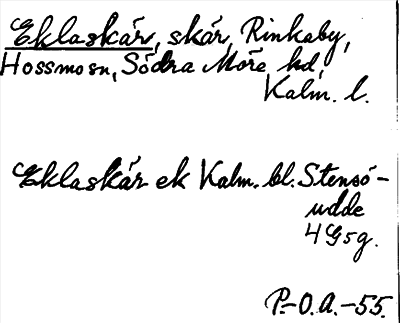 Eklaskär, skär, Rinkaby,
Hossmo sn, Södra Möre hd,
Kalm. l.
Eklaskär ek Kalm. bl. Stensö-
udde
4G5g.
P.-O.A.-55.